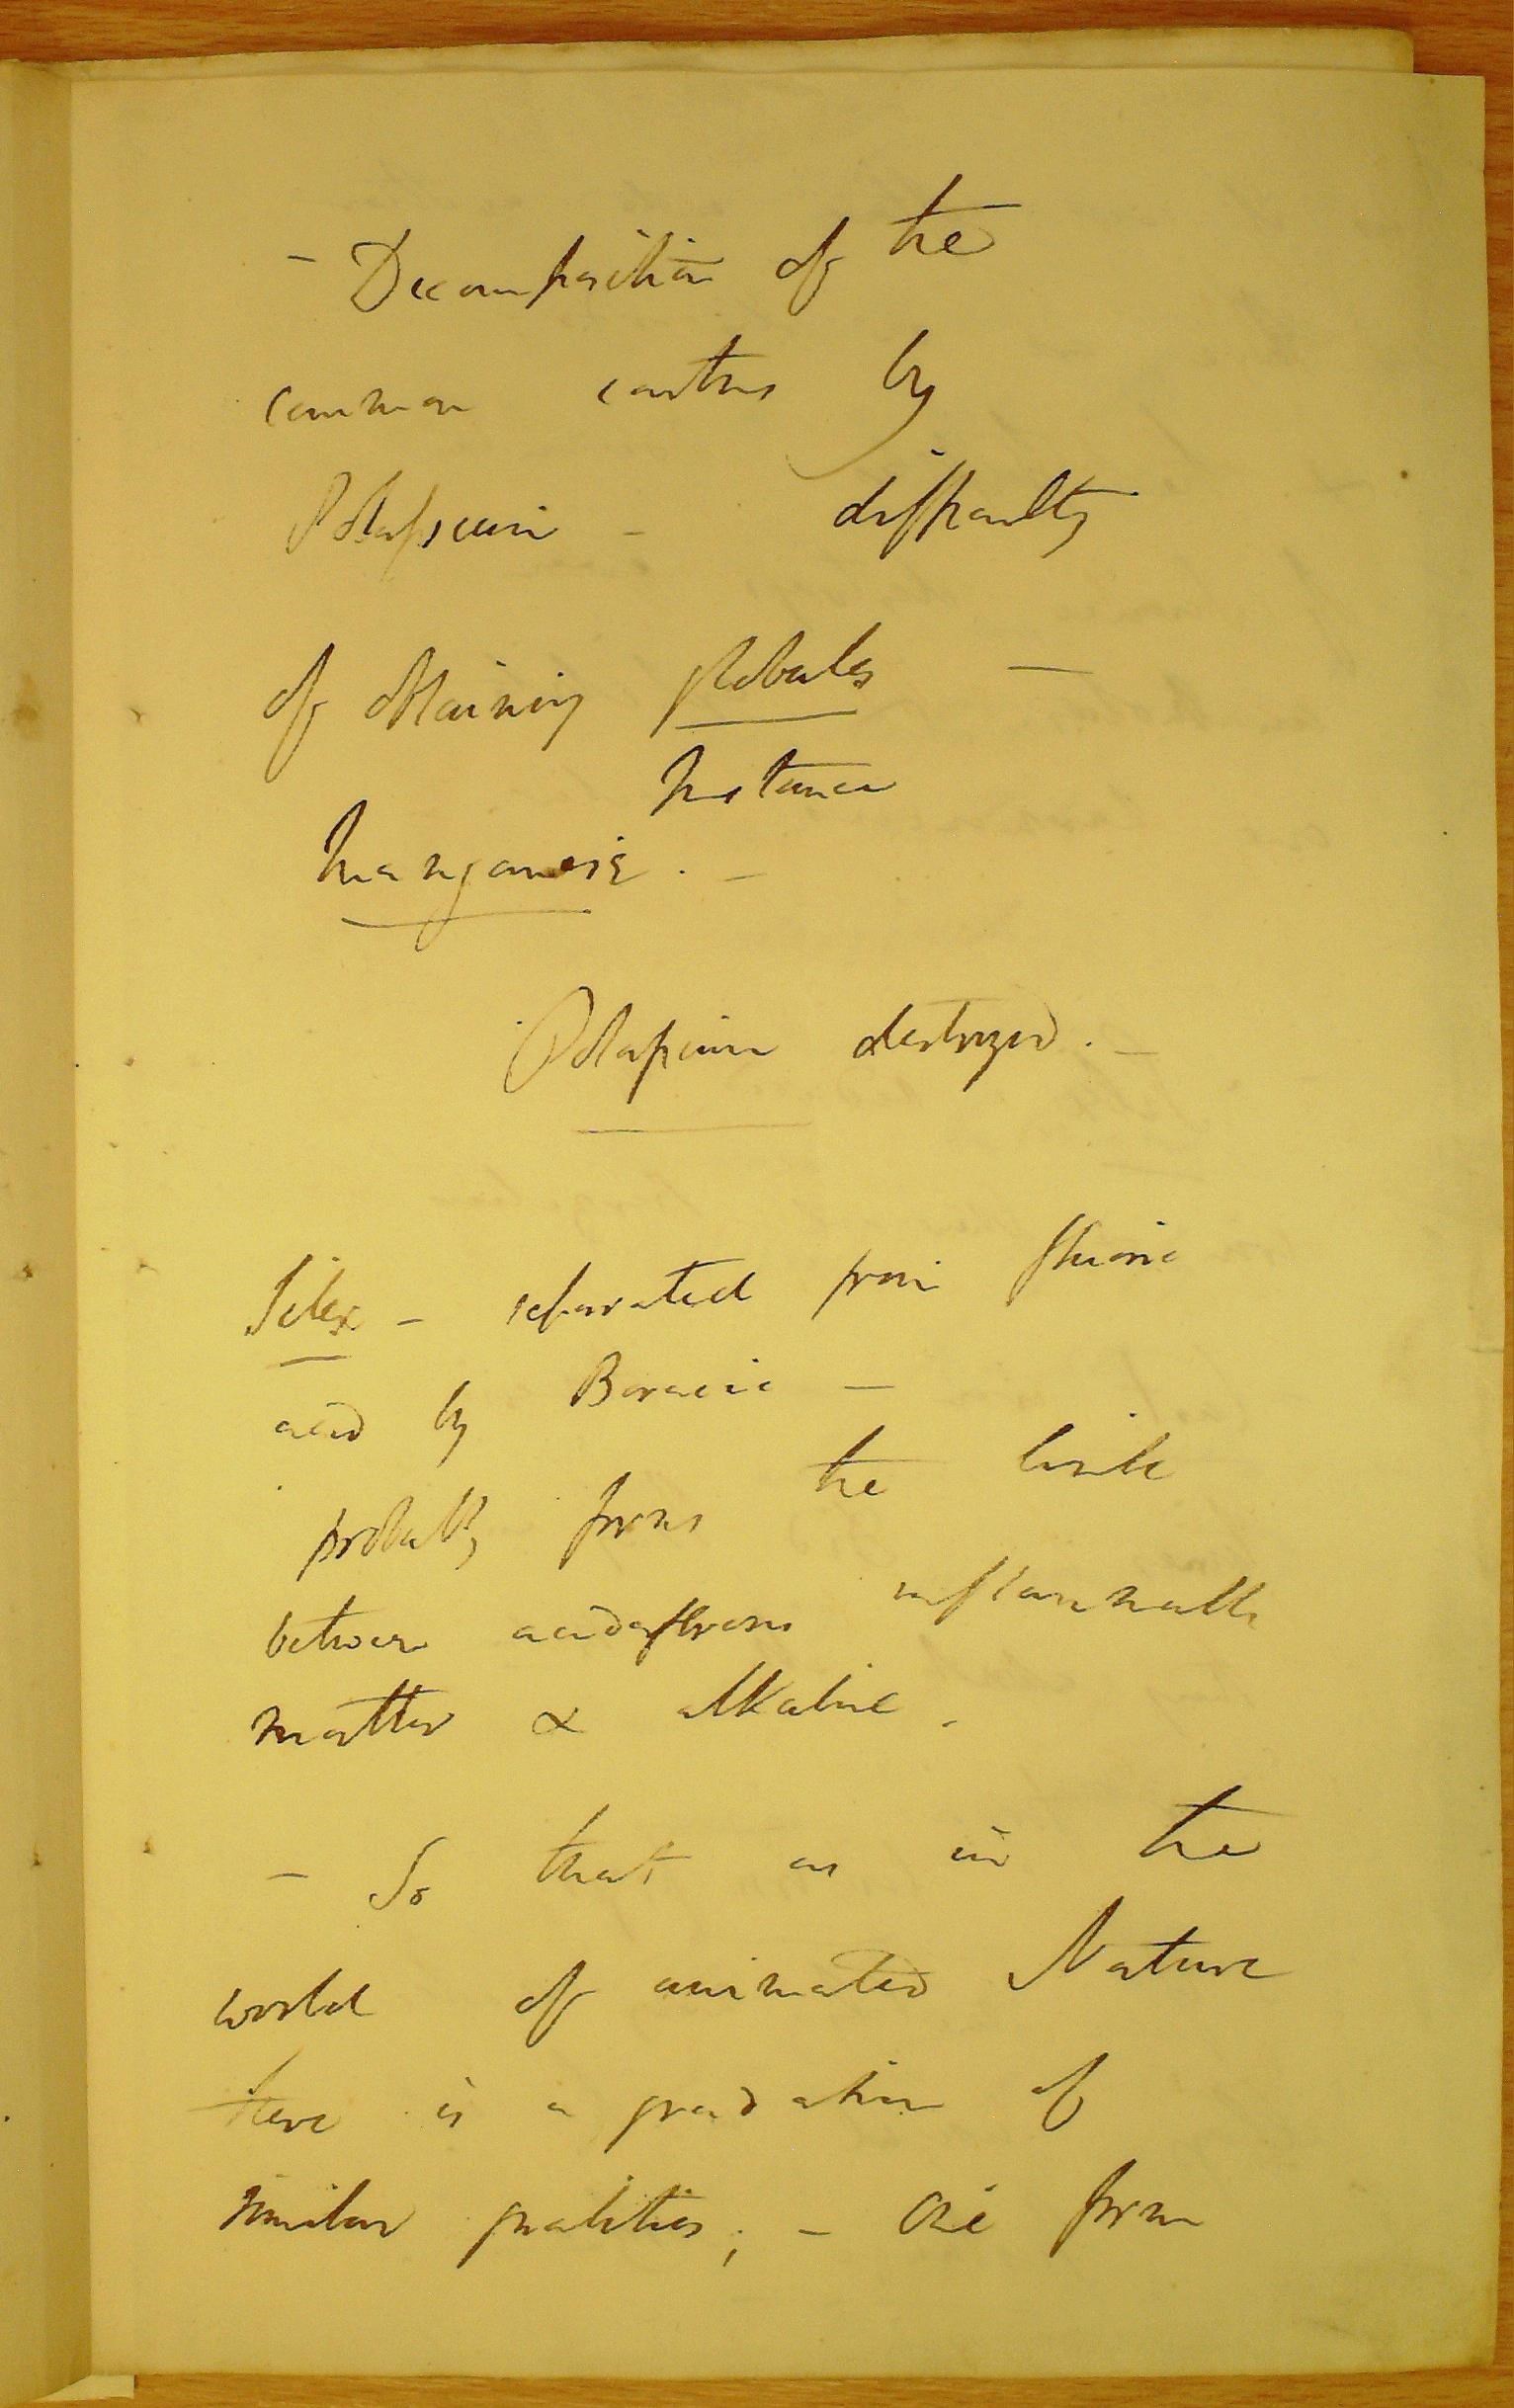 - Decomposition of the
common earths by
Potassium - difficulty
of obtaining globules -
Instance
Manganese. -
Potassium destroyed. -
Silex - separated from fluoric
acid by Boracic -
probably forms the link
between acidiferous inflammable
matter & alkaline.
- So that as in the
world of animated Nature
there is a gradation of
similar qualities; - One form